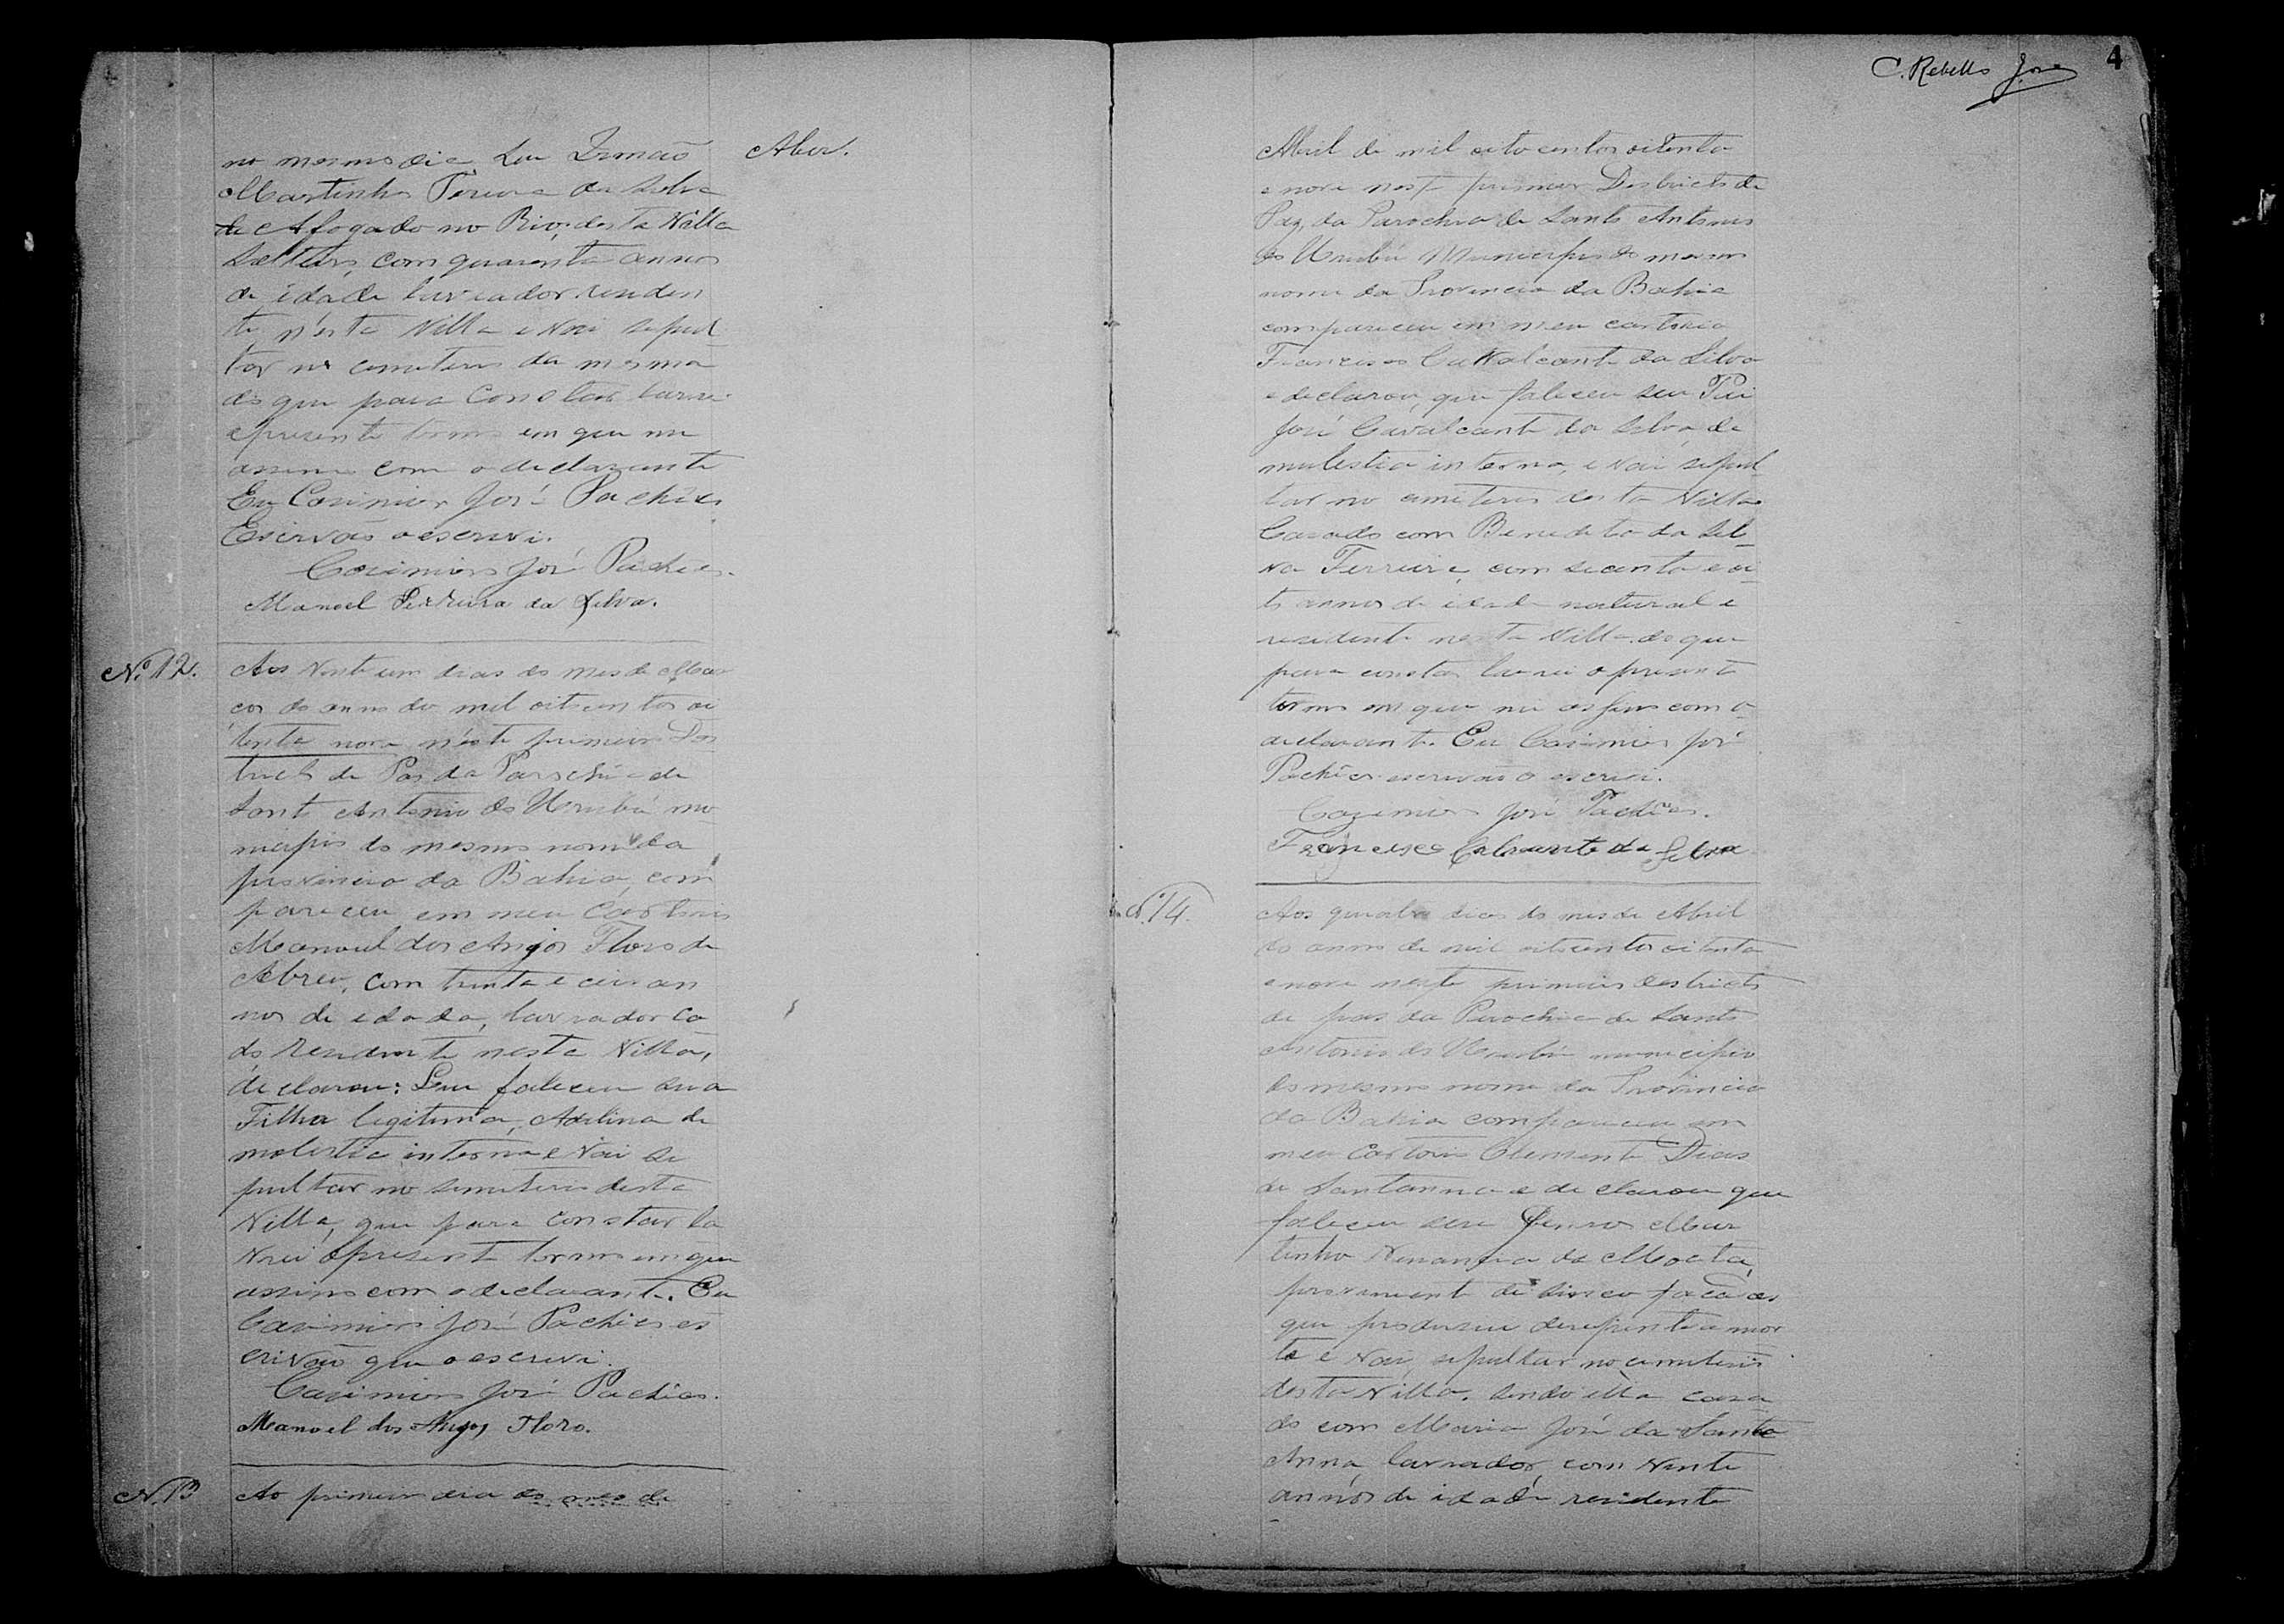 no mesmo dia seu Irmão
Martinho Pereira da Silva
de Afogado no Rio, desta Villa
Solteiro, com quarenta annos
de idade lavrador residen
te n'esta Villa e Vai sepul
tar no cemiterio da mesma
do que para Constar lavrei
o presente termo em que me
assino com o declarante
Eu Cazimiro José Pachêco
Escrivão o escrevi.
Cazimiro José Pachêco.
Manoel Perreira da Silva.
Aber.
N.º 12.
Aos Vinte um dias do mes de Mar
ço do anno de mil oitocentos oi
tenta nove n'este primeiro Des
tricto de Pas da Parochia de
Santo Antonio do Urubú mo
nicipio do mesmo nome da
provincia da Bahia, com
pareceu em meu Cartorio
Manoel dos Anjos Floro de
Abreu, com trinta e cinco an
nos de idade, lavrador ca
do Residente nesta Villa,
declarou: Que faleceu sua
Filha legitima, Adelina de
molestia interna e Vai se
pultar no semiterio desta
Villa, que para constar la
Vrei o presente termo em que
assino com o declarante. Eu
Cazimiro José Pachêco es
crivão que o escrevi.
Cazimiro José Pachêco.
Manoel dos Anjos Floro.
N. 13
Ao primeiro dia do mes de
C. Rebello
4
Abril de mil oito centos oitenta
e nove neste primeiro Destricto de
Paz, da Parochia de Santo Antonio
do Urubú Municipio do mesmo
nome da Provincia da Bahia
compareceu em meu cartorio
Francisco CaValcante da Silva
e declarou, que faleceu seu Pai
José Cavalcante da Silva, de
mulestia interna, e Vai sepul
tar no cimiterio desta Villa
Casado com Benedita da Sil
va Ferreira, com secenta e oi
to annos de idade natural e
residente nesta Villa. do que
para constar lavrei o presente
termo em que me assino com o
declarante. Eu Cazimiro José
Pachêco escrivão o escrevi.
Cazimiro José Pachêco.
Francisco Calvante da Silva
N.º 14.
Aos quatro dias do mes de Abril
do anno de mil oitocentos oitenta
e nove neste primeiro destricto
de pas da Parochia de Santo
Antonio do Urubú municipio
do mesmo nome da Provincia
da Bahia compareceu em
meu Cartorio Clemente Dias
de Santanna e declarou que
faleceu seu Genro Mar
tinho Venancia da Mocta,
proveniente de sinco facadas
que produziu derepente a mor
te e Vai sepultar no cemiterio
desta Villa. sendo elle casa
do com Maria José da Santa
Anna, lavrador, com Vinte
annos de idade residente